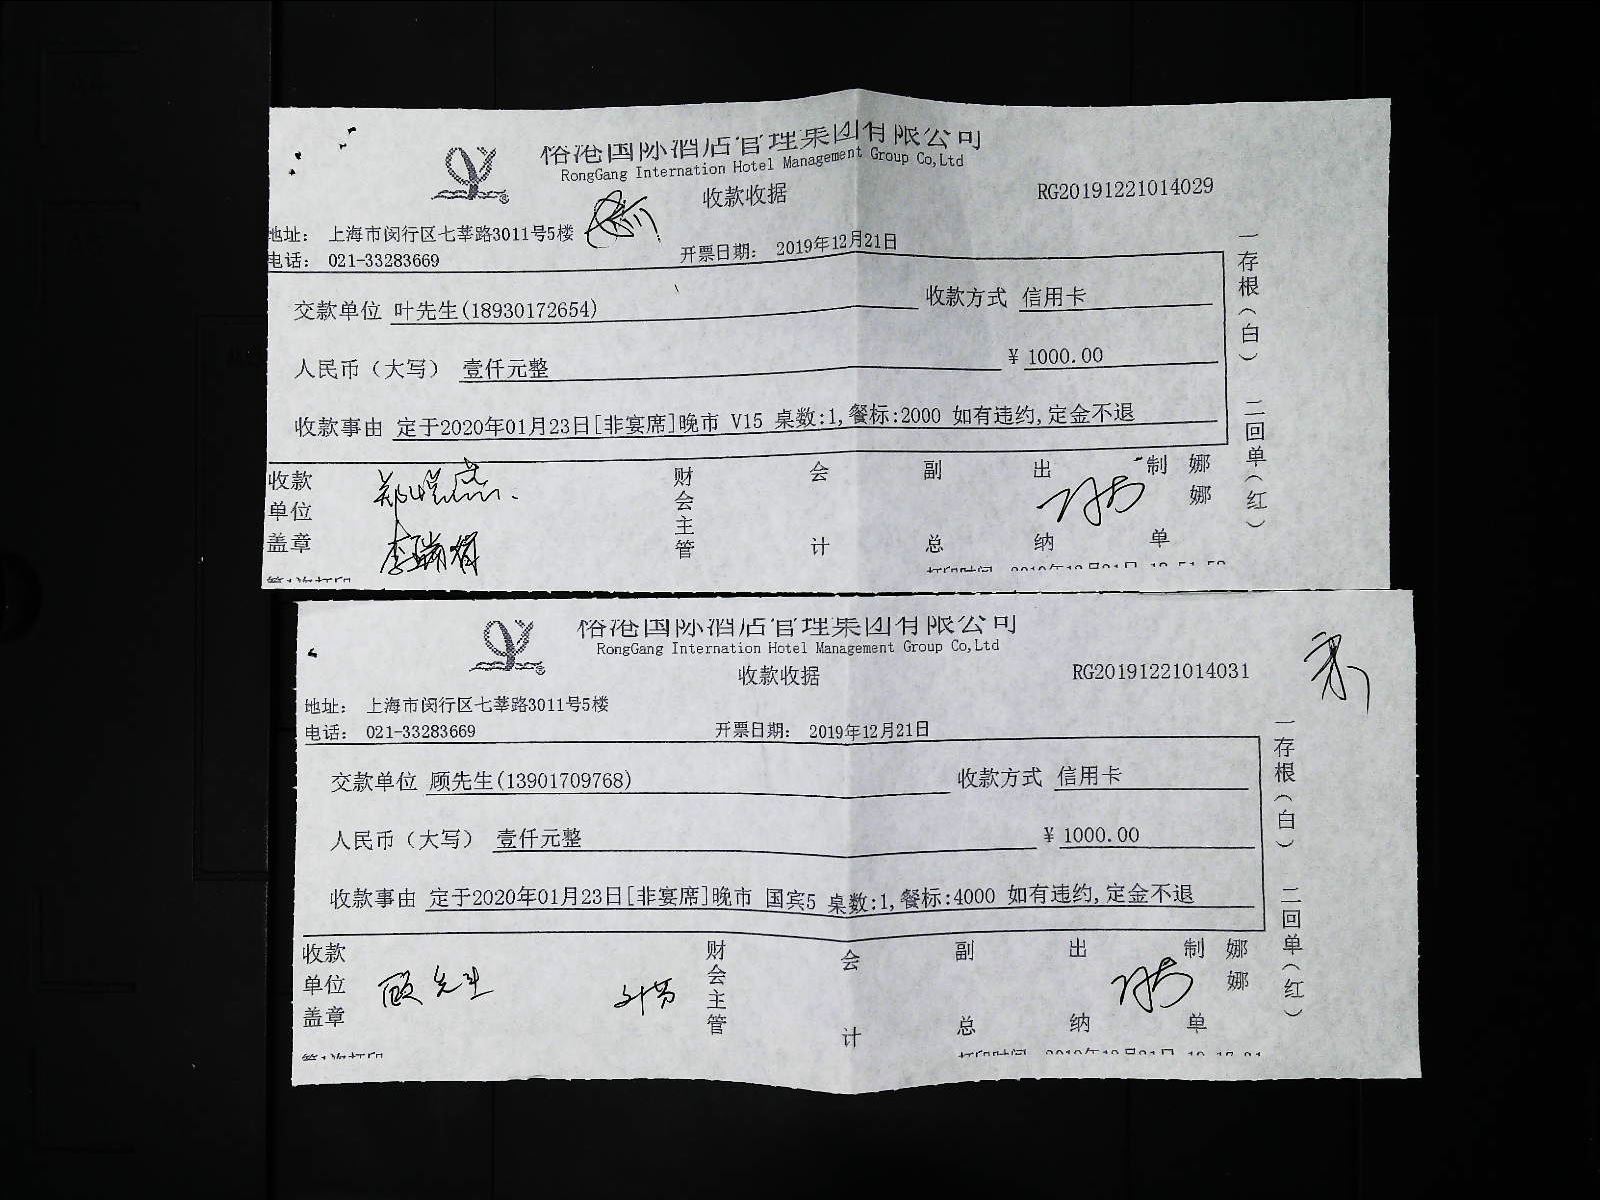 国际酒店管理集团有限公司
RongGang Internation Hotel Management Group Co,Ltd
收款收据
RG20191221014029
地址： 上海市闵行区七莘路3011号5楼
电话： 021-33283669
开票日期： 2019年12月21日
交款单位 叶先生(18930172654)
收款方式 信用卡
人民币（大写） 壹仟元整
¥ 1000.00
收款事由 定于2020年01月23日[非宴席]晚市 V15 桌数:1,餐标:2000 如有违约,定金不退
一存根（白） 二回单（红）
收款单位盖章
财会主管
会计
副总
出纳
制单
娜娜
第1次打印
国际酒店管理集团有限公司
RongGang Internation Hotel Management Group Co,Ltd
收款收据
RG20191221014031
地址： 上海市闵行区七莘路3011号5楼
电话： 021-33283669
开票日期： 2019年12月21日
交款单位 顾先生(13901709768)
收款方式 信用卡
人民币（大写） 壹仟元整
¥ 1000.00
收款事由 定于2020年01月23日[非宴席]晚市 国宾5 桌数:1,餐标:4000 如有违约,定金不退
一存根（白） 二回单（红）
收款单位盖章
顾先生
财会主管
会计
副总
出纳
制单
娜娜
第1次打印